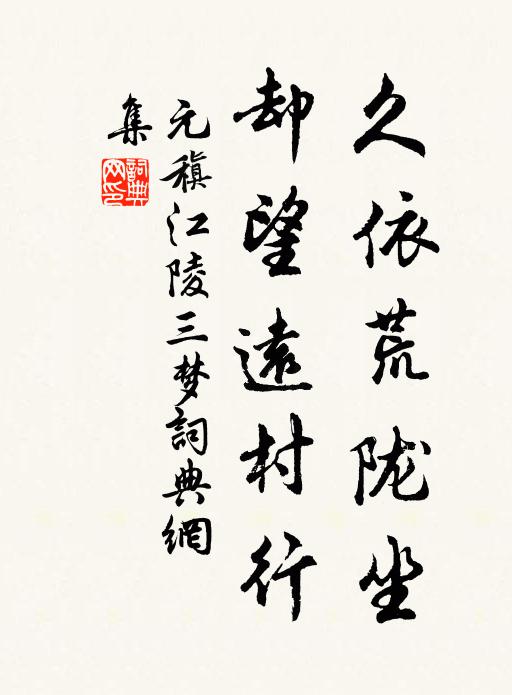 久依荒陇坐
却望遠村行
元稹江陵三梦詞典網
集
詞典網印